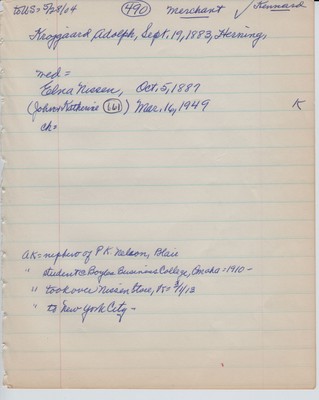 to US = 5/28/04 490 merchant ✓ Kennard
Krozgaard, Adolph, Sept. 19, 1883, Herning,
med =
Edna Nissen, Oct. 5, 1887
(John & Katherine 161) Mar. 16, 1949 K
ch =
AK = nephew of P K Nelson, Blair
" student @ Boyles Business College, Omaha = 1910 -
" took over Nissen Store, K = 3/1/13
" to New York City -